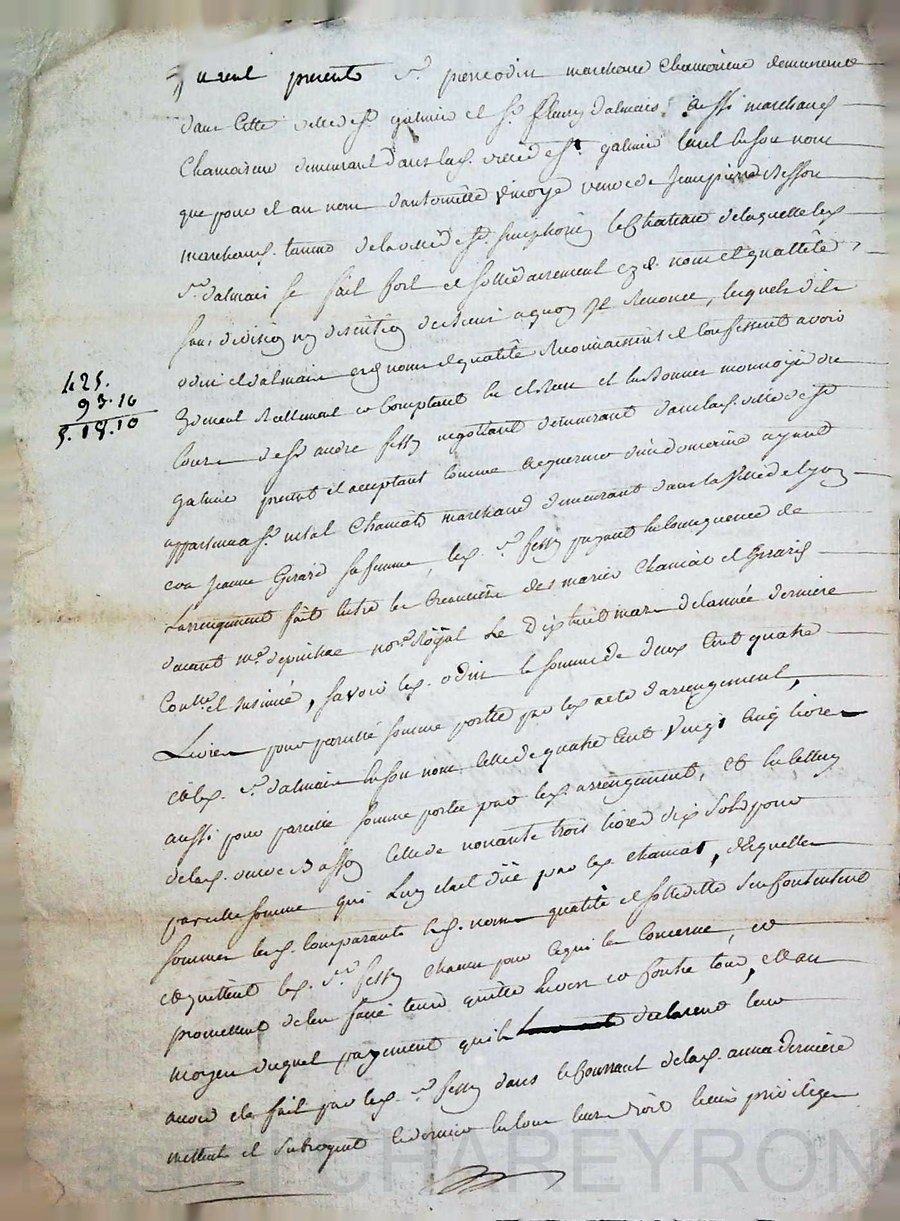 furent presents Sr. pierre odin marchand Chamoiseur demeurant
dans Cette ville de st. galmier et Sr. fleury dalmais aussi marchand
Chamoiseur demeurant dans lad. ville de st. galmier tant en son nom
que pour et au nom dantoinette veuve de Jean pierre Basson
marchand tanneur de la ville de st. simphorien le Chateau de laquelle led.
Sr. dalmais se fait fort et sollidairement esd. nom et quallité
sans division ny discution de biens a quoy ils Renonce, lesquels dits
odin et dalmais esd. noms et qualité Reconnaissent et Confessent avoir
Reellement et Comptant en especes et bonne monnoye de
Cours de Sr. andre fessy negottiant demeurant dans lad. ville de st.
galmier present et acceptant Comme acquereur d'un domaine ayant
appartenu a Sr. vital Chamat marchand demeurant dans la ville de Lyon
et a Jeanne Girard sa femme, led. Sr. fessy payant en Consequence de
Larrengement fait entre les Creanciers des mariés Chamat et Girard
devant me. nore. Royal Le dix huit mars de lannée derniere
Contrlé et insinué, savoir led. odin la somme de deux Cent quatre
Livres pour pareille somme portée par led. acte darrengement,
et led. Sr. dalmais en son nom Celle de quatre Cent vingt Cinq livres
aussi pour pareille somme portée par led. arrengement, et en
de lad. veuve Basson Celle de nonante trois livres dix sols pour
pareille somme qui Luy etait düe par led. Chamat, desquelles
sommes lesd. Comparants esd. noms qualité et sollidité sen Contentent
et quittent led. Sr. fessy chacun pour Ce qui les Concerne, et
promettent de len faire tenir quitte envers et Contre tous, et au
moyen duquel payement quils declarent leur
avoir été fait par led. Sr. fessy dans le Courrant de lad. année derniere
mettent et subrogent ce dernier en leur lieu droit privilège
425.
93.10
5.18.10
Pascal CHAREYRON